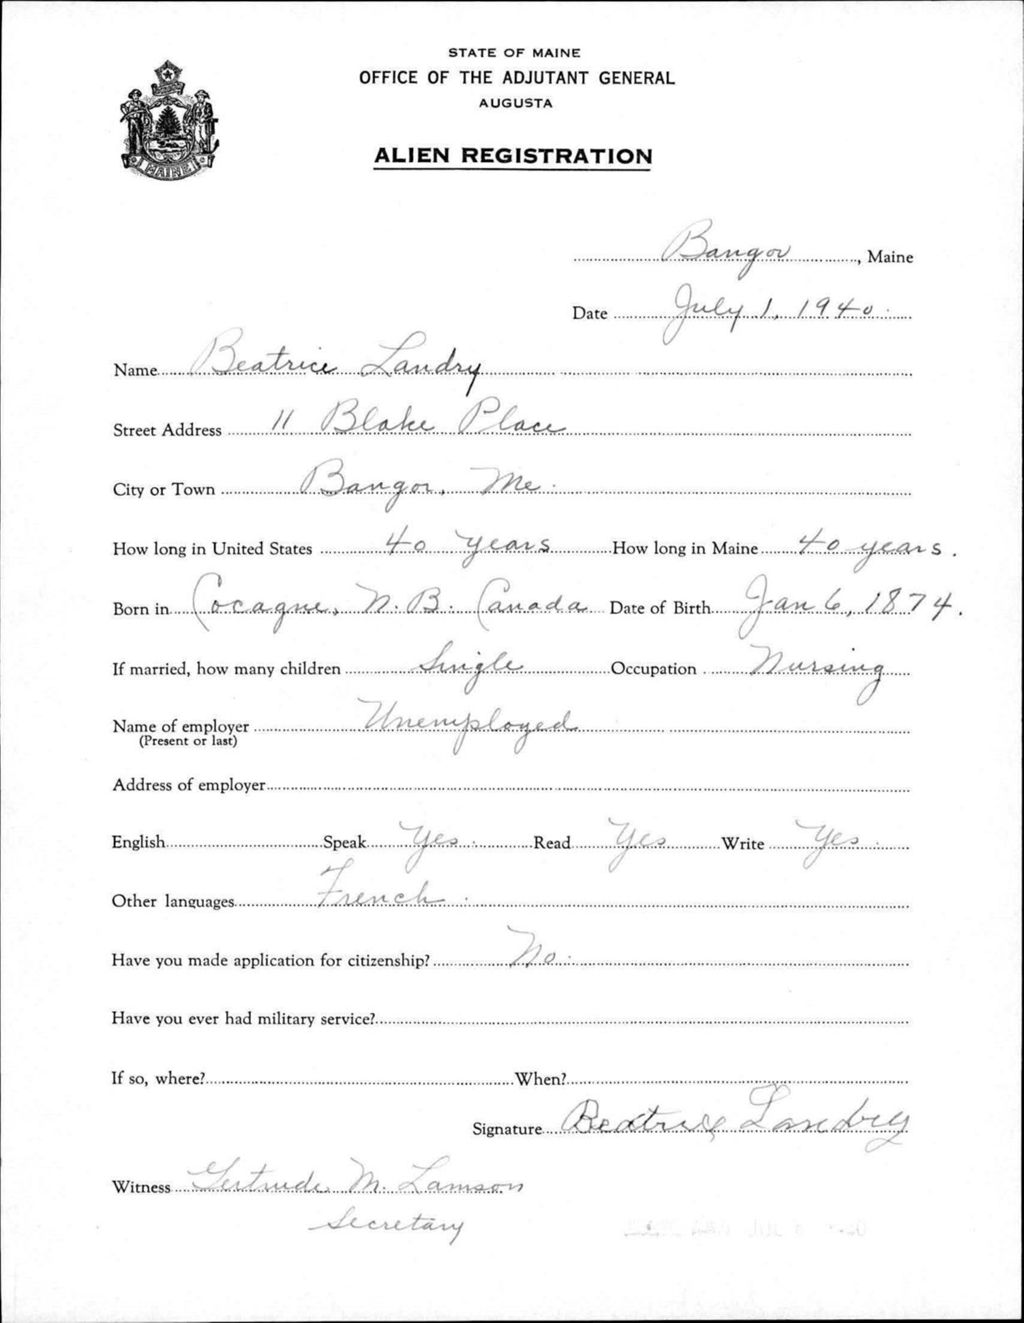 STATE OF MAINE
OFFICE OF THE ADJUTANT GENERAL
AUGUSTA
ALIEN REGISTRATION
MAINE
Bangor, Maine
Date July 1, 1940.
Name Beatrice Landry
Street Address 11 Blake Place
City or Town Bangor, Me.
How long in United States 40 years How long in Maine 40 years.
Born in Cocagne, N.B. Canada Date of Birth Jan 6, 1874.
If married, how many children Single Occupation Nursing
Name of employer Unemployed
(Present or last)
Address of employer
English Speak Yes. Read Yes Write Yes.
Other languages French.
Have you made application for citizenship? No.
Have you ever had military service?
If so, where? When?
Signature Beatrice Landry
Witness Gertrude M. Lamson
Secretary